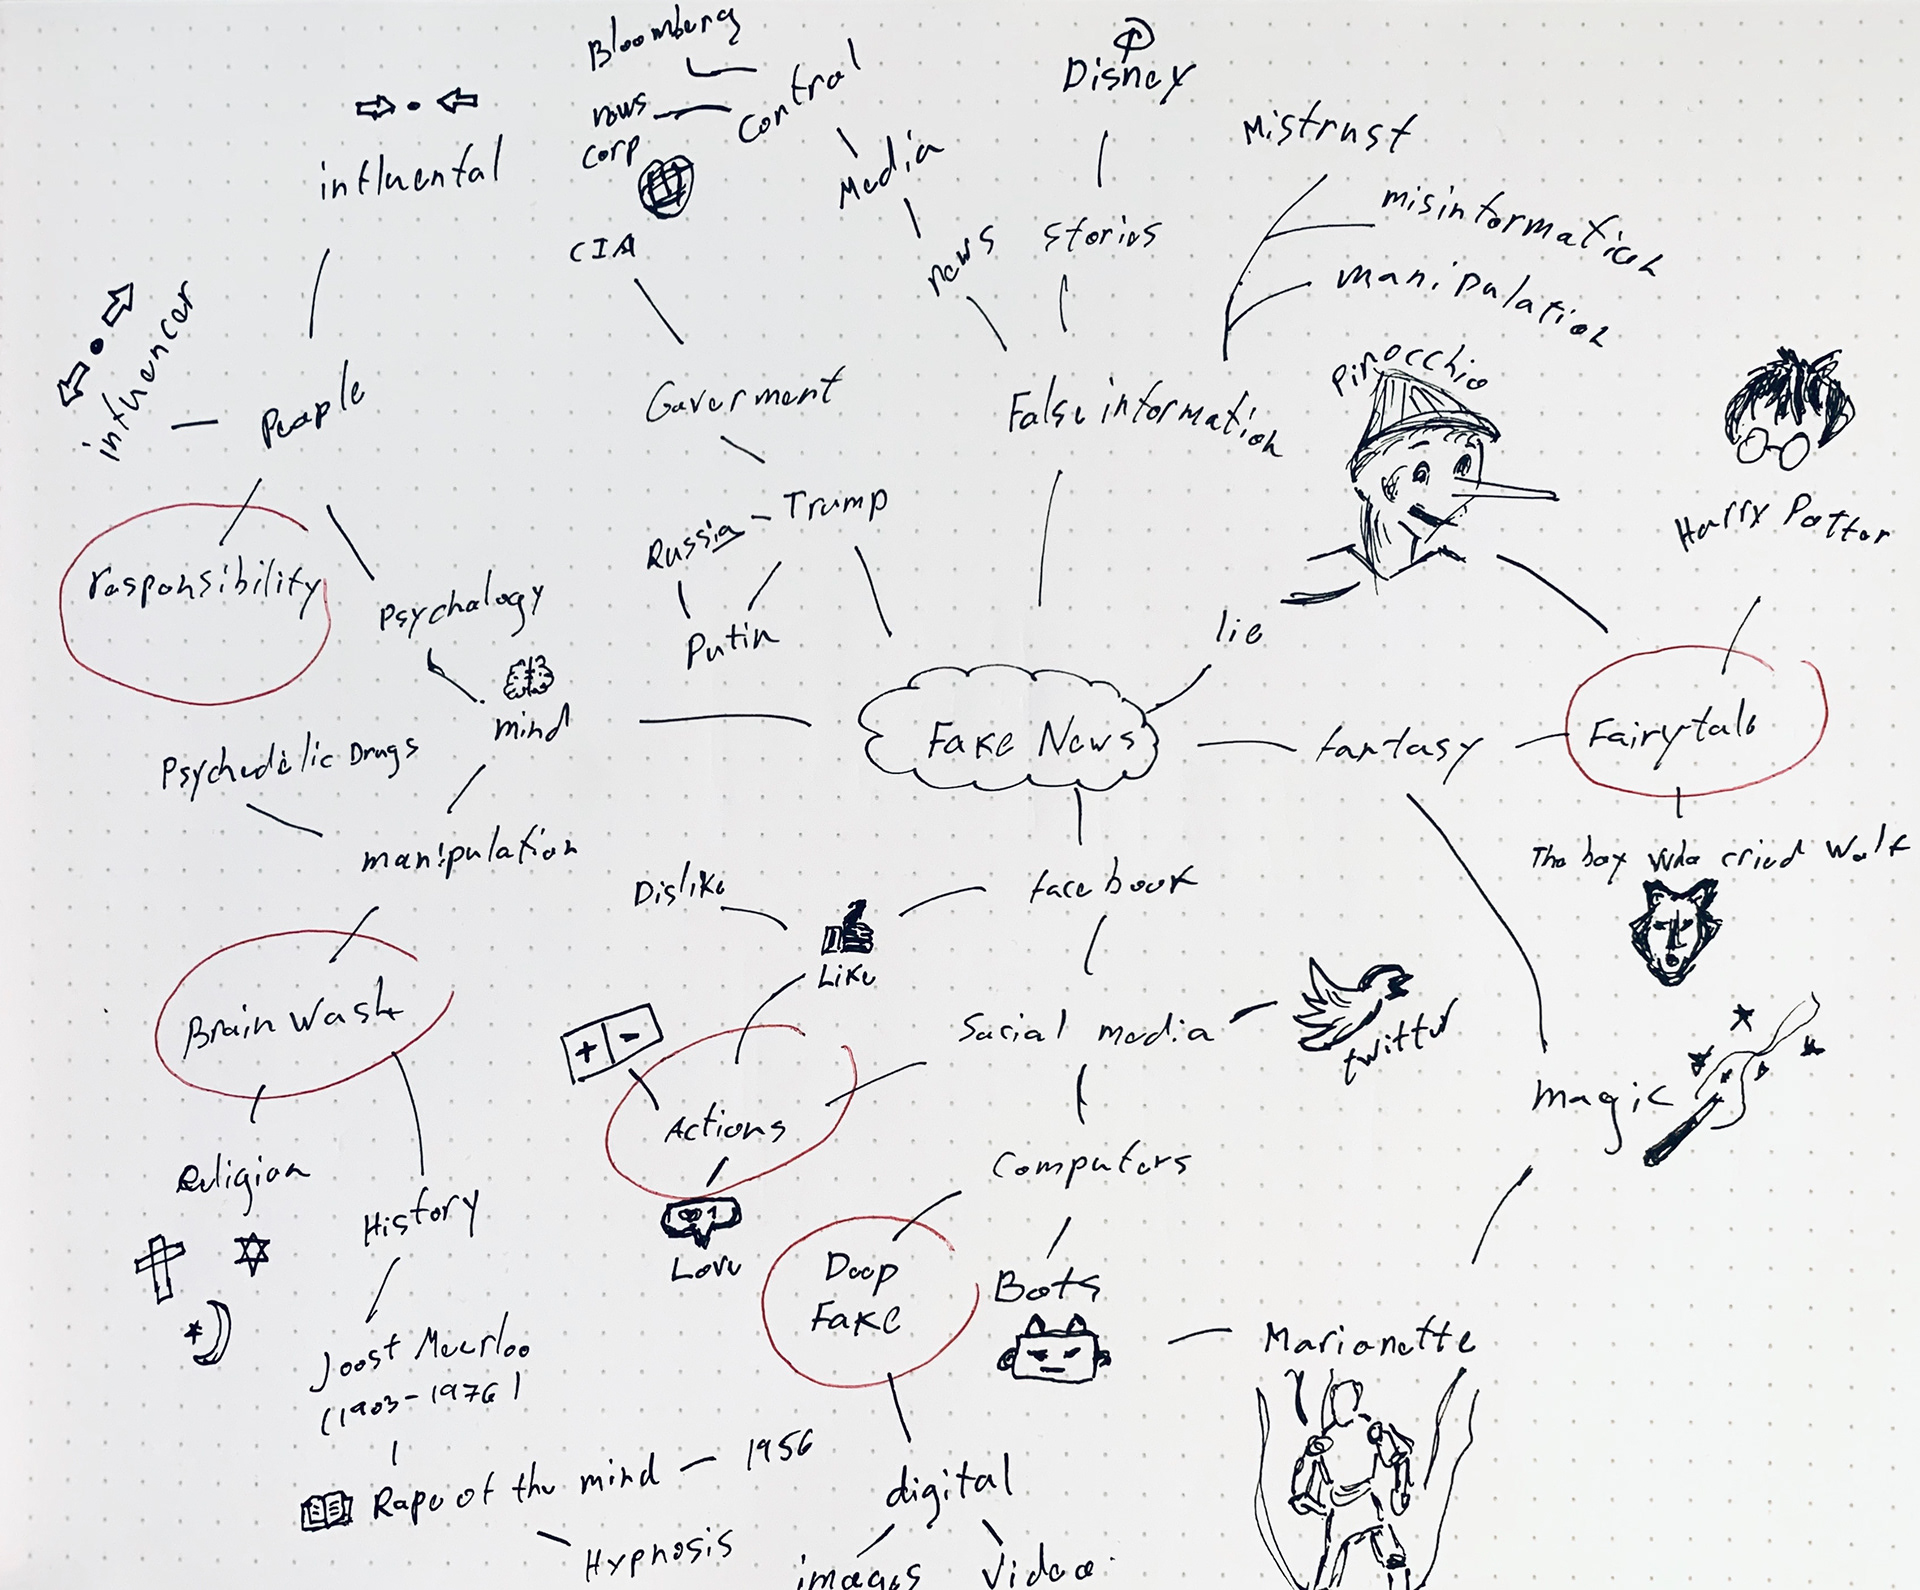 Bloomberg
Disney
Control
news
corp
Mistrust
Media
influental
misinformation
CIA
news
stories
manipulation
influencer
Goverment
Pinocchio
People
False information
Trump
Russia
Harry Potter
responsibility
Psychology
Putin
lie
mind
Fake News
fantasy
Fairytale
Psychedelic Drugs
manipulation
The boy who cried Wolf
Dislike
facebook
Like
Brain Wash
Social media
twitter
+ -
Actions
magic
Religion
Computers
History
Love
Deep
Fake
Bots
Joost Meerloo
(1903-1976)
Marionette
Rape of the mind - 1956
digital
Hypnosis
images
Video